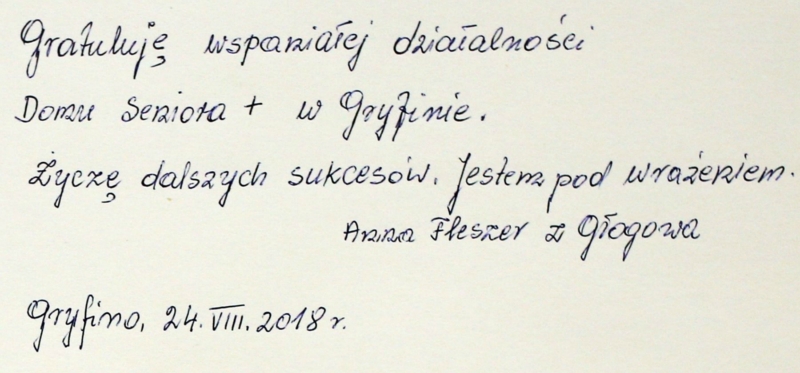 Gratuluję wspaniałej działalności
Domu Seniora + w Gryfinie.
Życzę dalszych sukcesów. Jestem pod wrażeniem.
Anna Fleszer z Głogowa
Gryfino, 24. VIII. 2018 r.